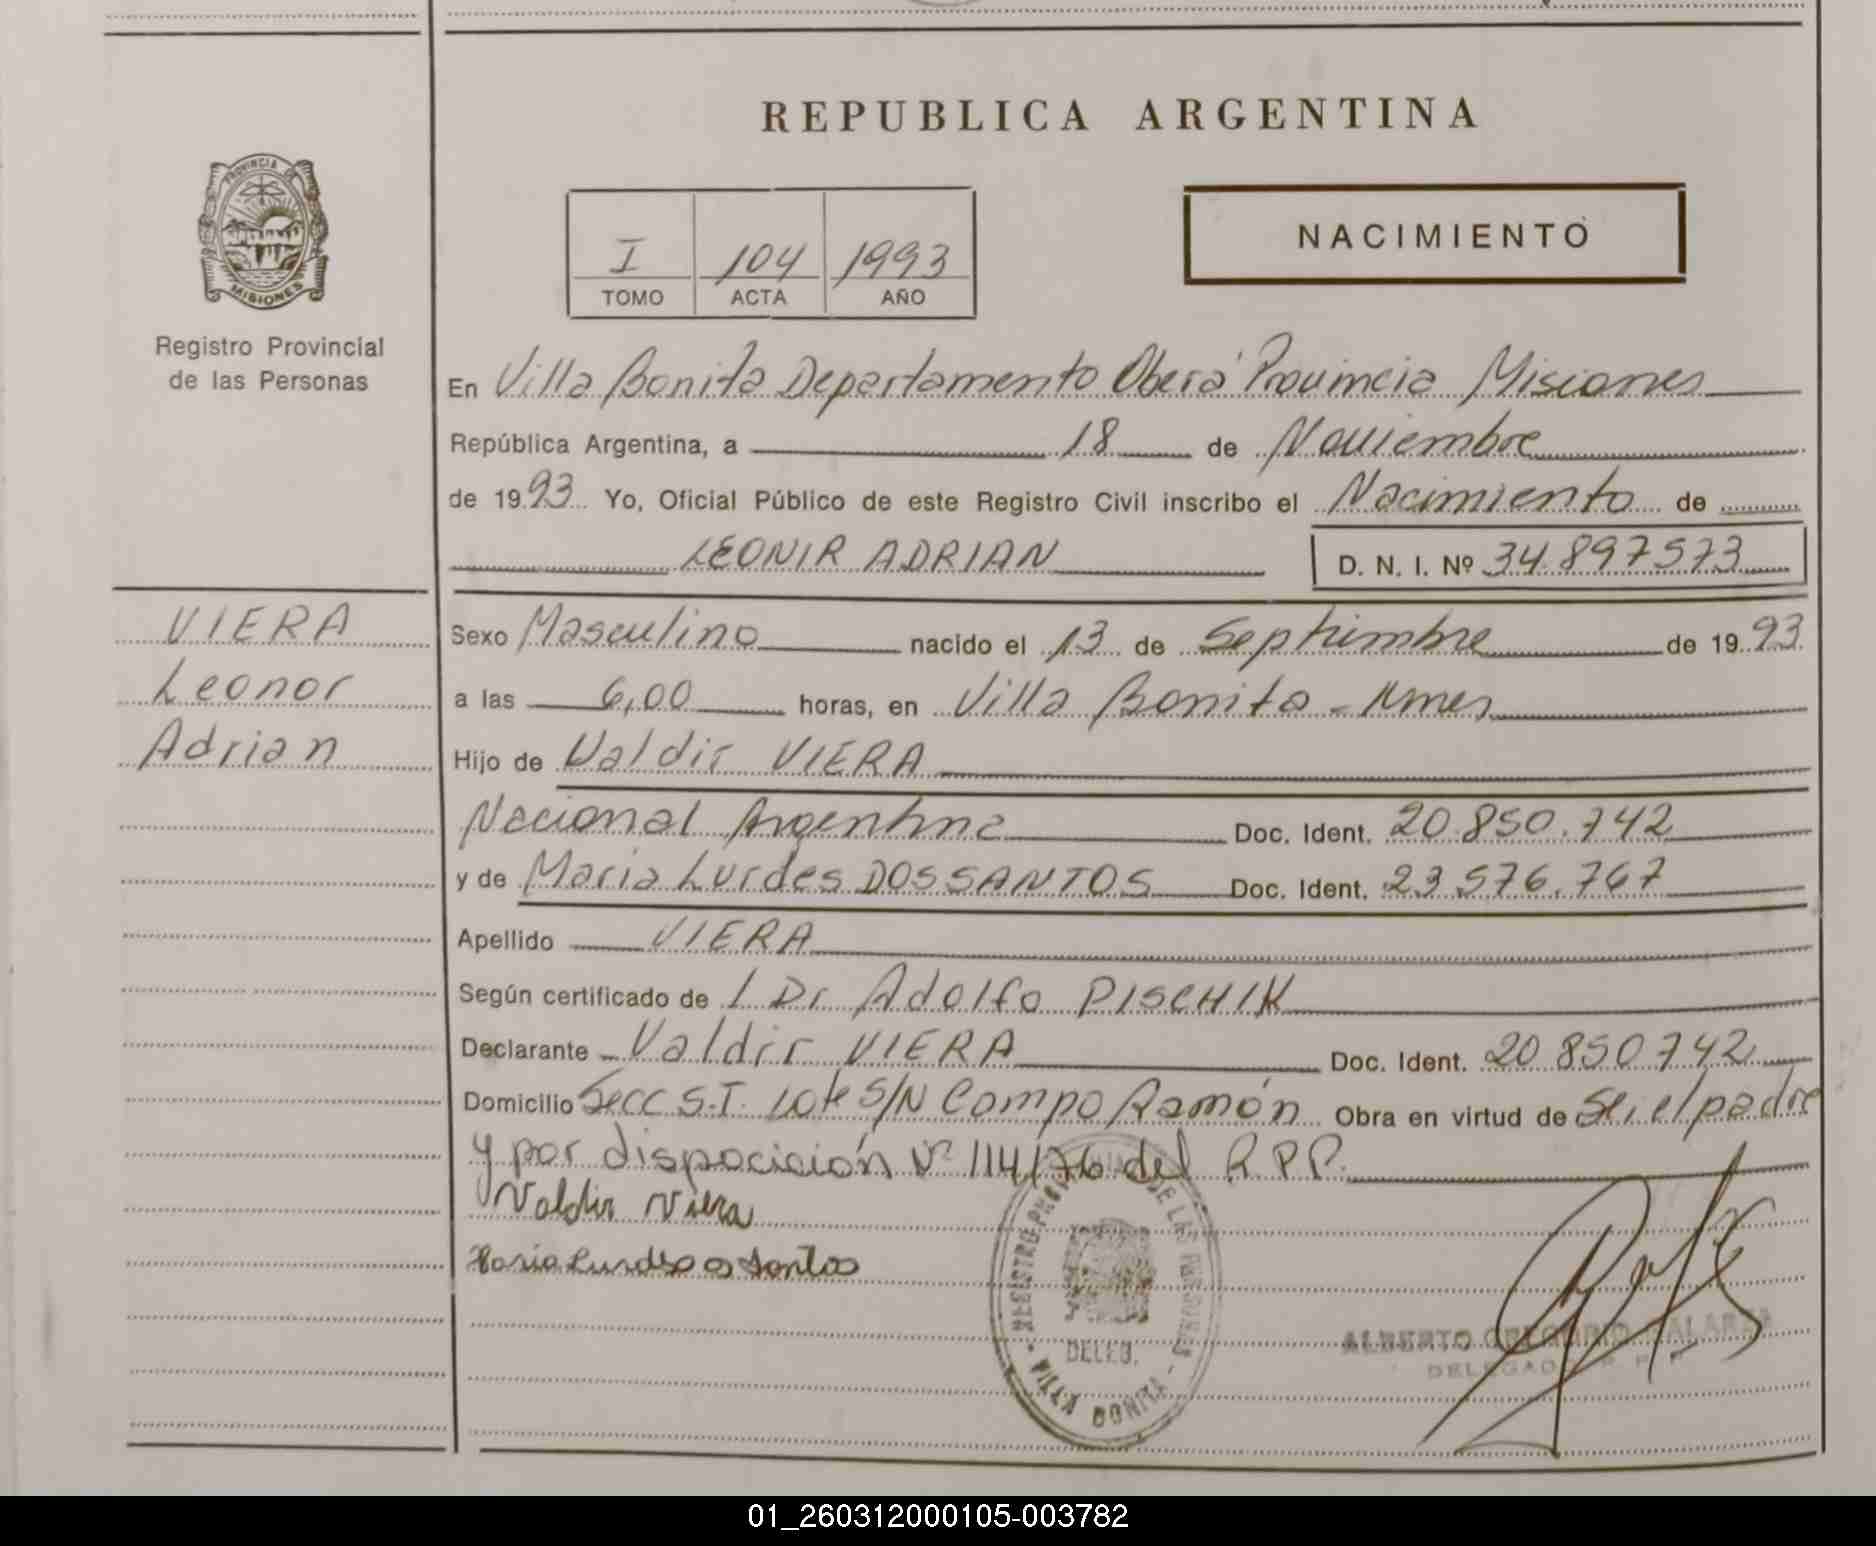 REPUBLICA ARGENTINA
PROVINCIA DE
MISIONES
Registro Provincial
de las Personas
I 104 1993
TOMO ACTA AÑO
NACIMIENTO
En Villa Bonita Departamento Oberá Provincia Misiones
República Argentina, a 18 de Noviembre
de 1993 Yo, Oficial Público de este Registro Civil inscribo el Nacimiento de
LEONIR ADRIAN D. N. I. Nº 34.897573
VIERA
Leonor
Adrian
Sexo Masculino nacido el 13 de Septiembre de 1993
a las 6,00 horas, en Villa Bonita -
Hijo de Valdir VIERA
Nacional Argentina Doc. Ident. 20.850.742
y de Maria Lurdes DOS SANTOS Doc. Ident. 23.576.767
Apellido VIERA
Según certificado de / Dr Adolfo PISCHIK
Declarante Valdir VIERA Doc. Ident. 20 850 742
Domicilio Secc S.T. Lote S/N Campo Ramón Obra en virtud de Sei el padre
y por dispocición Nº 114/76 del R.P.P.
Valdir Viera
Maria Lurdes os Santos
REGISTRO PROVINCIAL DE LAS PERSONAS
DELEG.
VILLA BONITA
ALBERTO GREGORIO
DELEGADO R P P
01_260312000105-003782